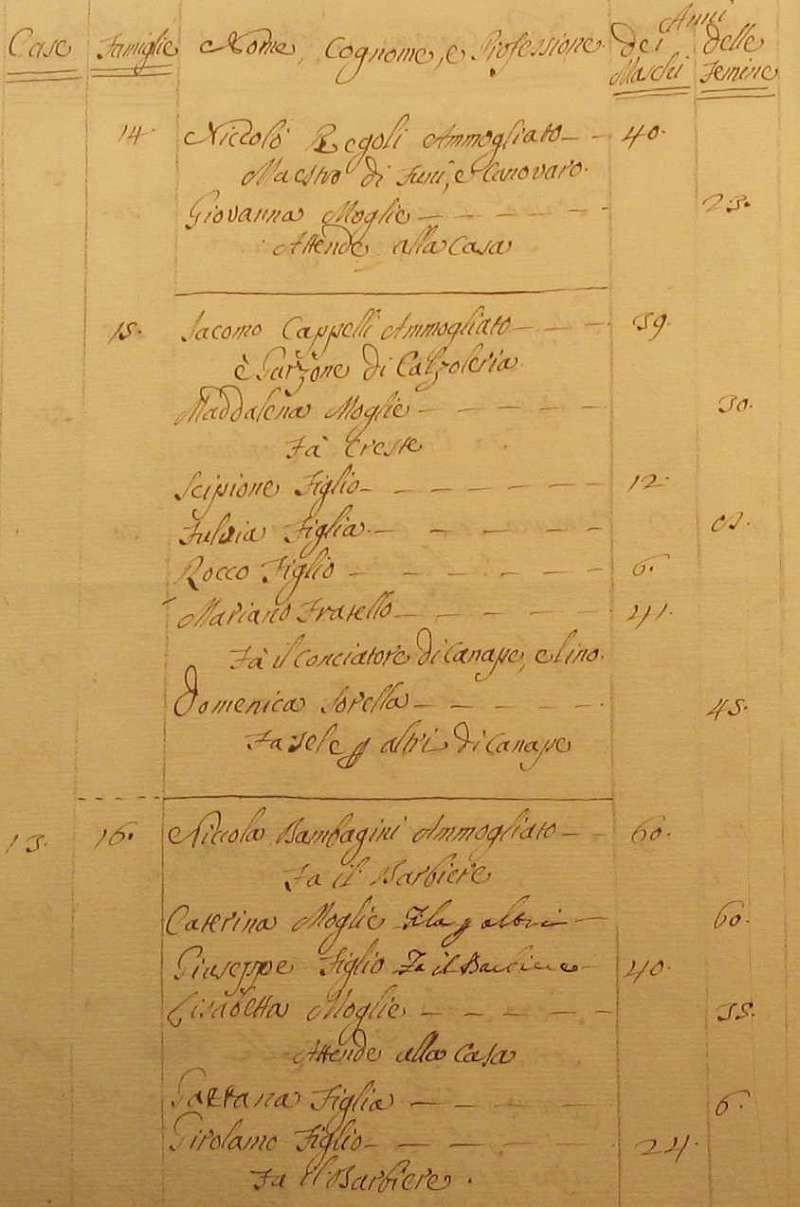 Case Famiglie Nome, Cognome, e Professione Anni dei Maschi delle Femine
14. Niccolò Regoli Ammogliato 40.
Maestro di Funi, e Canovaro.
Giovanna Moglie 23.
Attende alla Casa
15. Iacomo Cappelli Ammogliato 59.
è Garzone di Calzoleria
Maddalena Moglie 30.
Fà Creste
Scipione Figlio 12.
Fulvia Figlia
Rocco Figlio 6.
Mariano Fratello 41.
Fà il Conciatore di Canape, e lino.
Domenica Sorella 45.
Fa tele p altri di Canape
13. 16. Niccola Bambagini Ammogliato 60.
Fa il Barbiere
Caterina Moglie Fila p altri 60.
Giuseppe Figlio Fa il Barbiere 40.
Lisabetta Moglie 35.
Attende alla Casa
Gaetana Figlia 6.
Girolamo Figlio 24.
Fa il Barbiere.